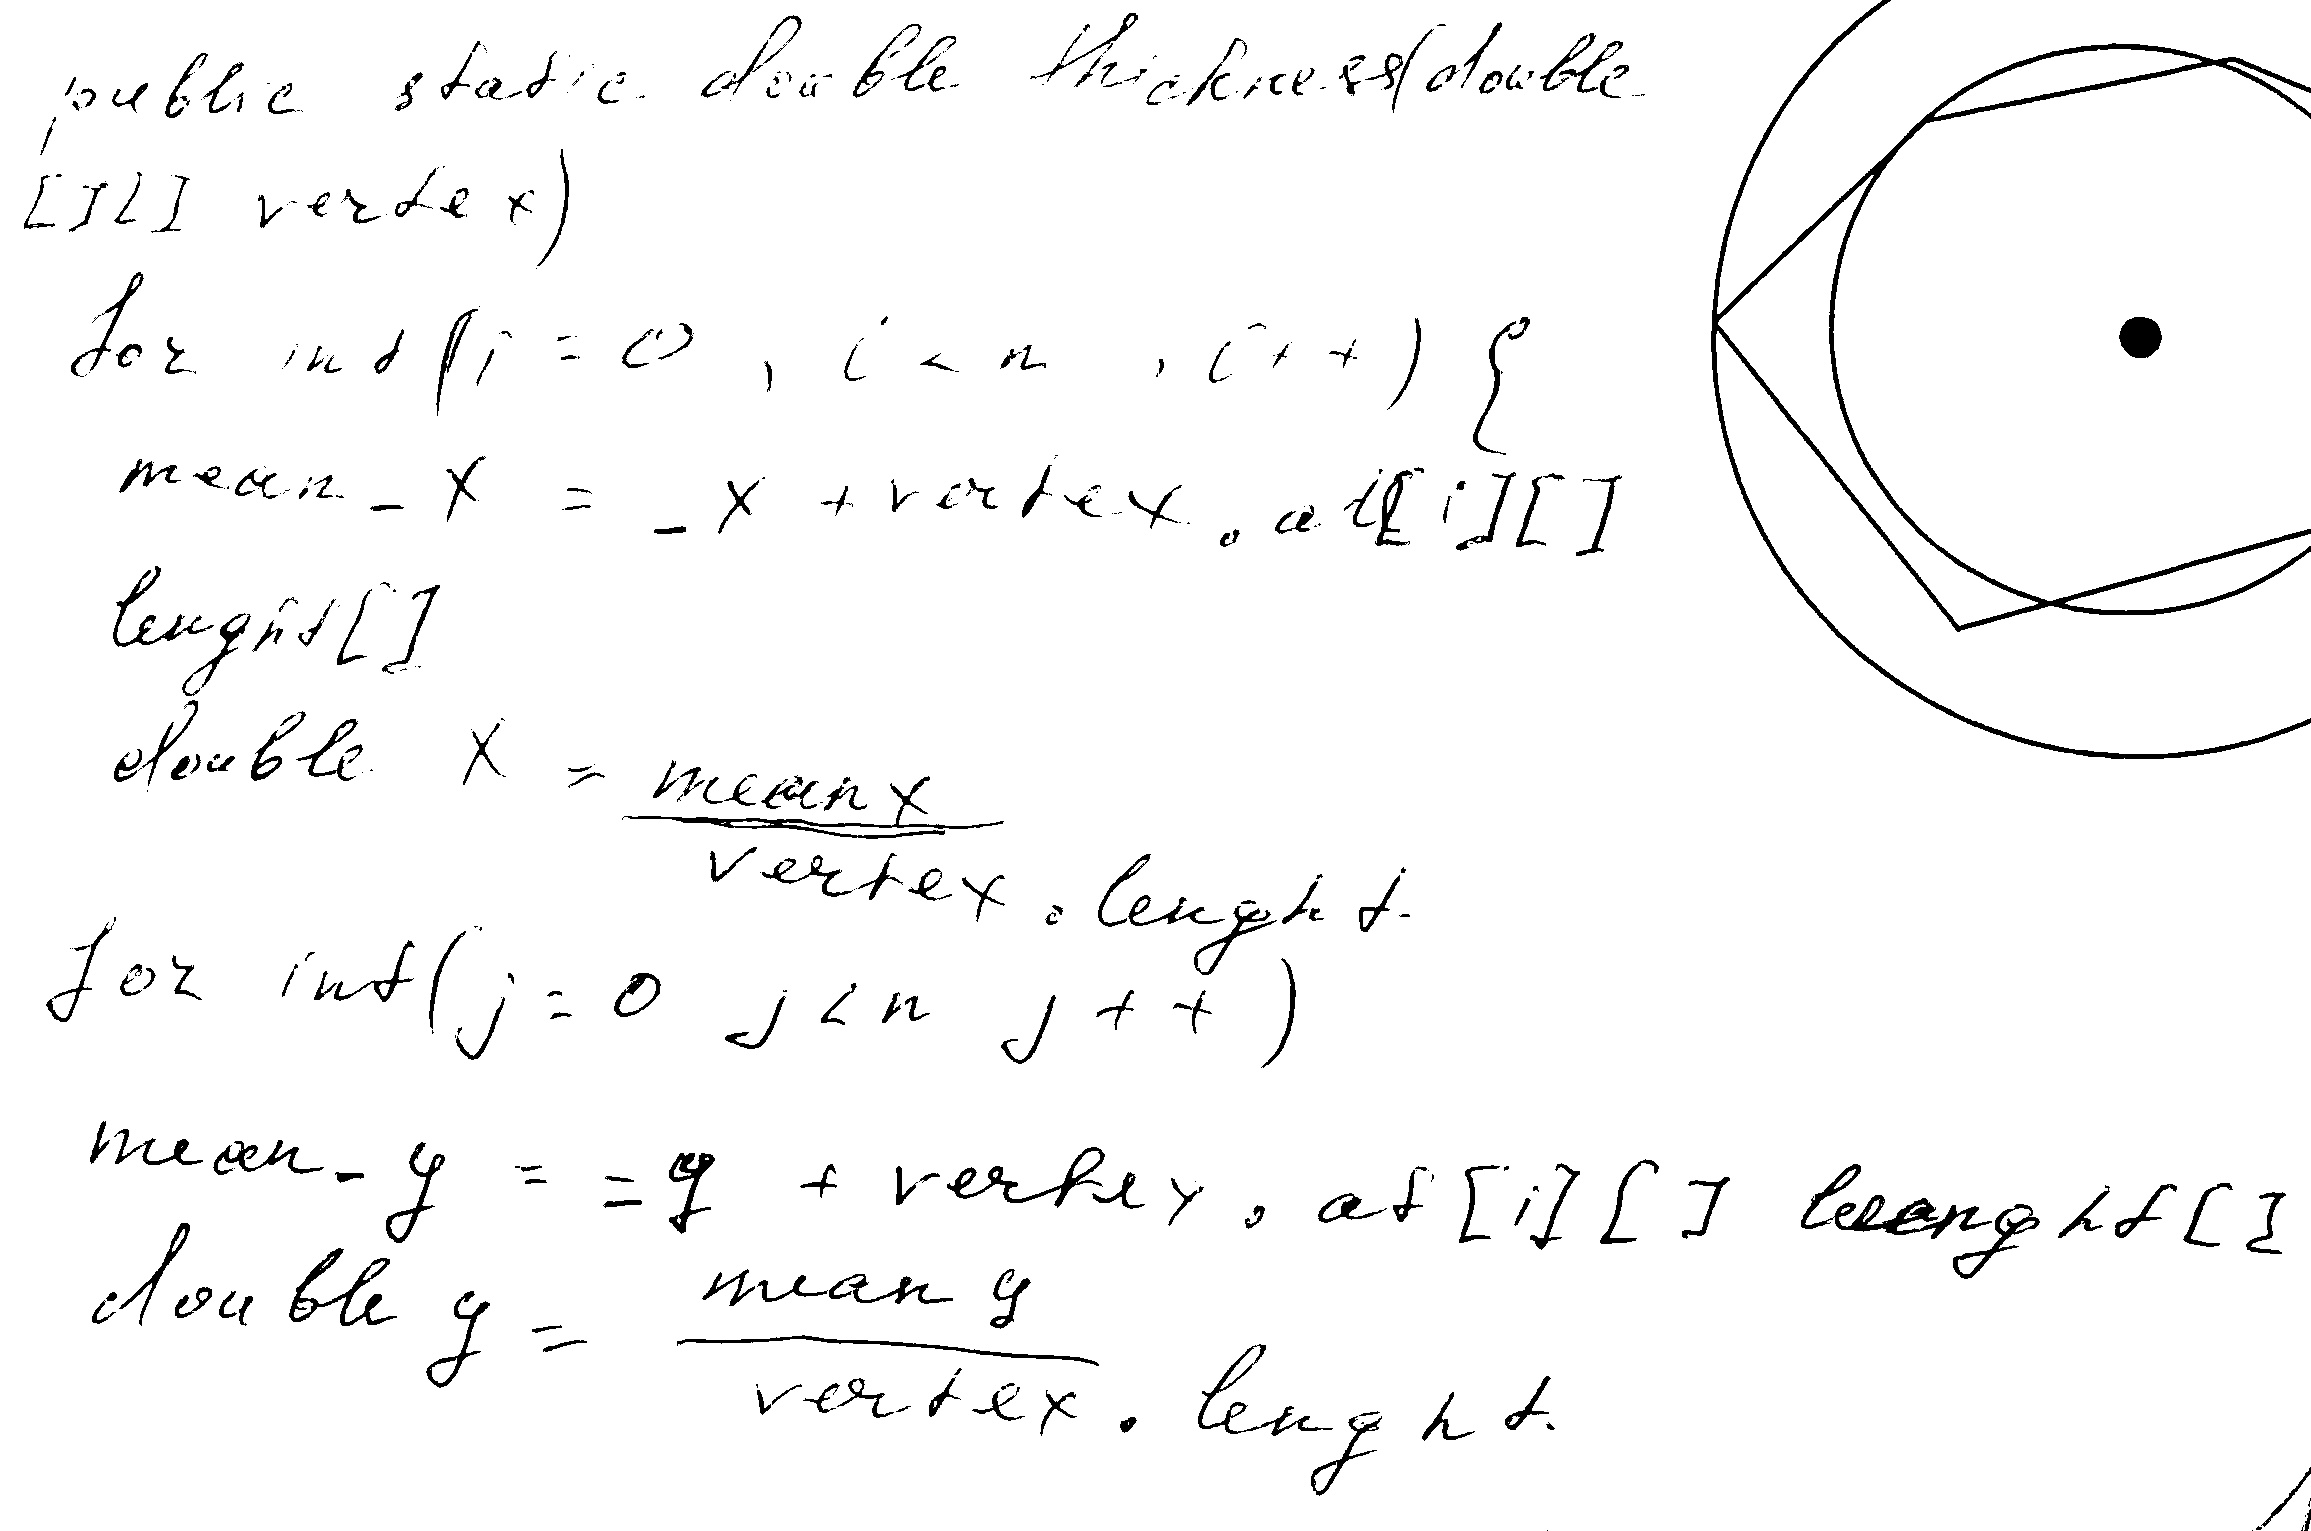 public static double thickness(double
[][] vertex)
for int(i=0 , i<n , i++) {
mean_x = _x + vertex.at[i][]
lenght[]
double x = mean x
vertex.lenght
for int(j=0 j<n j++)
mean_y = =y + vertex.at[i][] lenght[]
double y = mean y
vertex.lenght